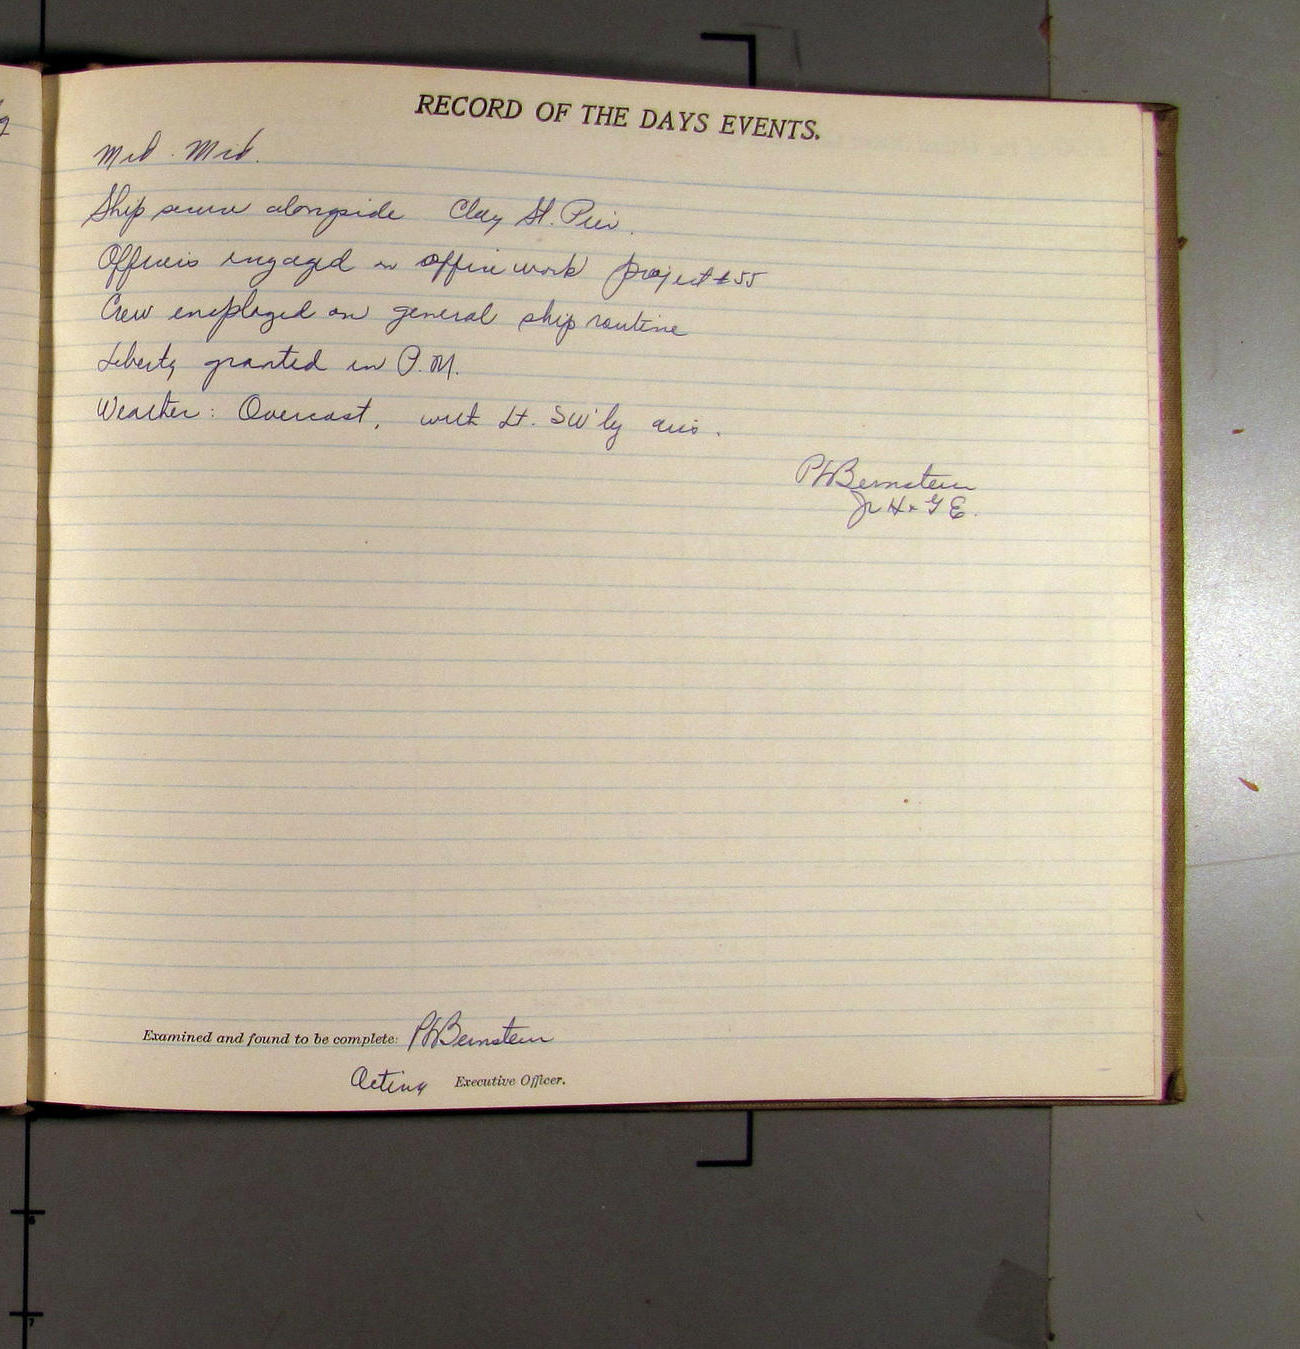 RECORD OF THE DAYS EVENTS.
Mid - Mid.
Ship secure alongside Clay St. Pier.
Officers engaged in office work project #55
Crew employed on general ship routine
Liberty granted in P.M.
Weather: Overcast, with Lt. SW'ly airs.
PLBernstein
Jr H & G E.
Examined and found to be complete: PLBernstein
Acting Executive Officer.
6
7